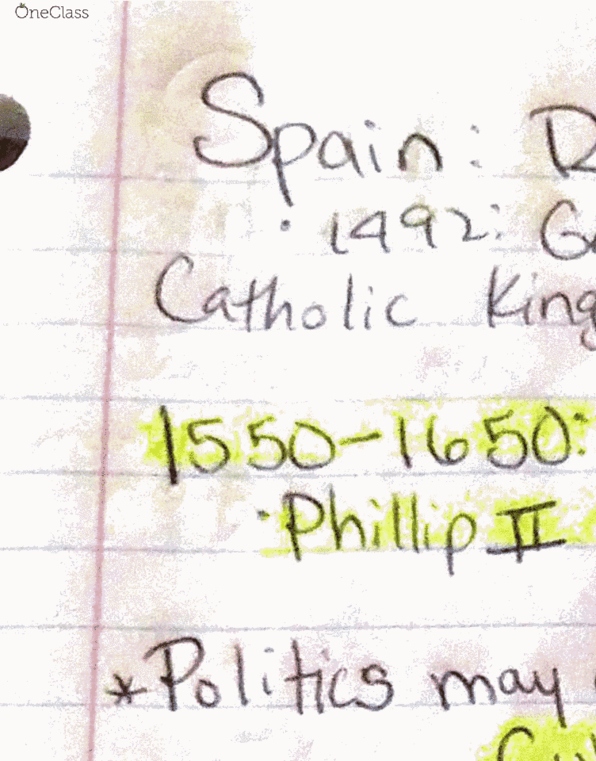 OneClass
Spain:
• 1492:
Catholic King
1550-1650:
• Phillip II
*Politics may